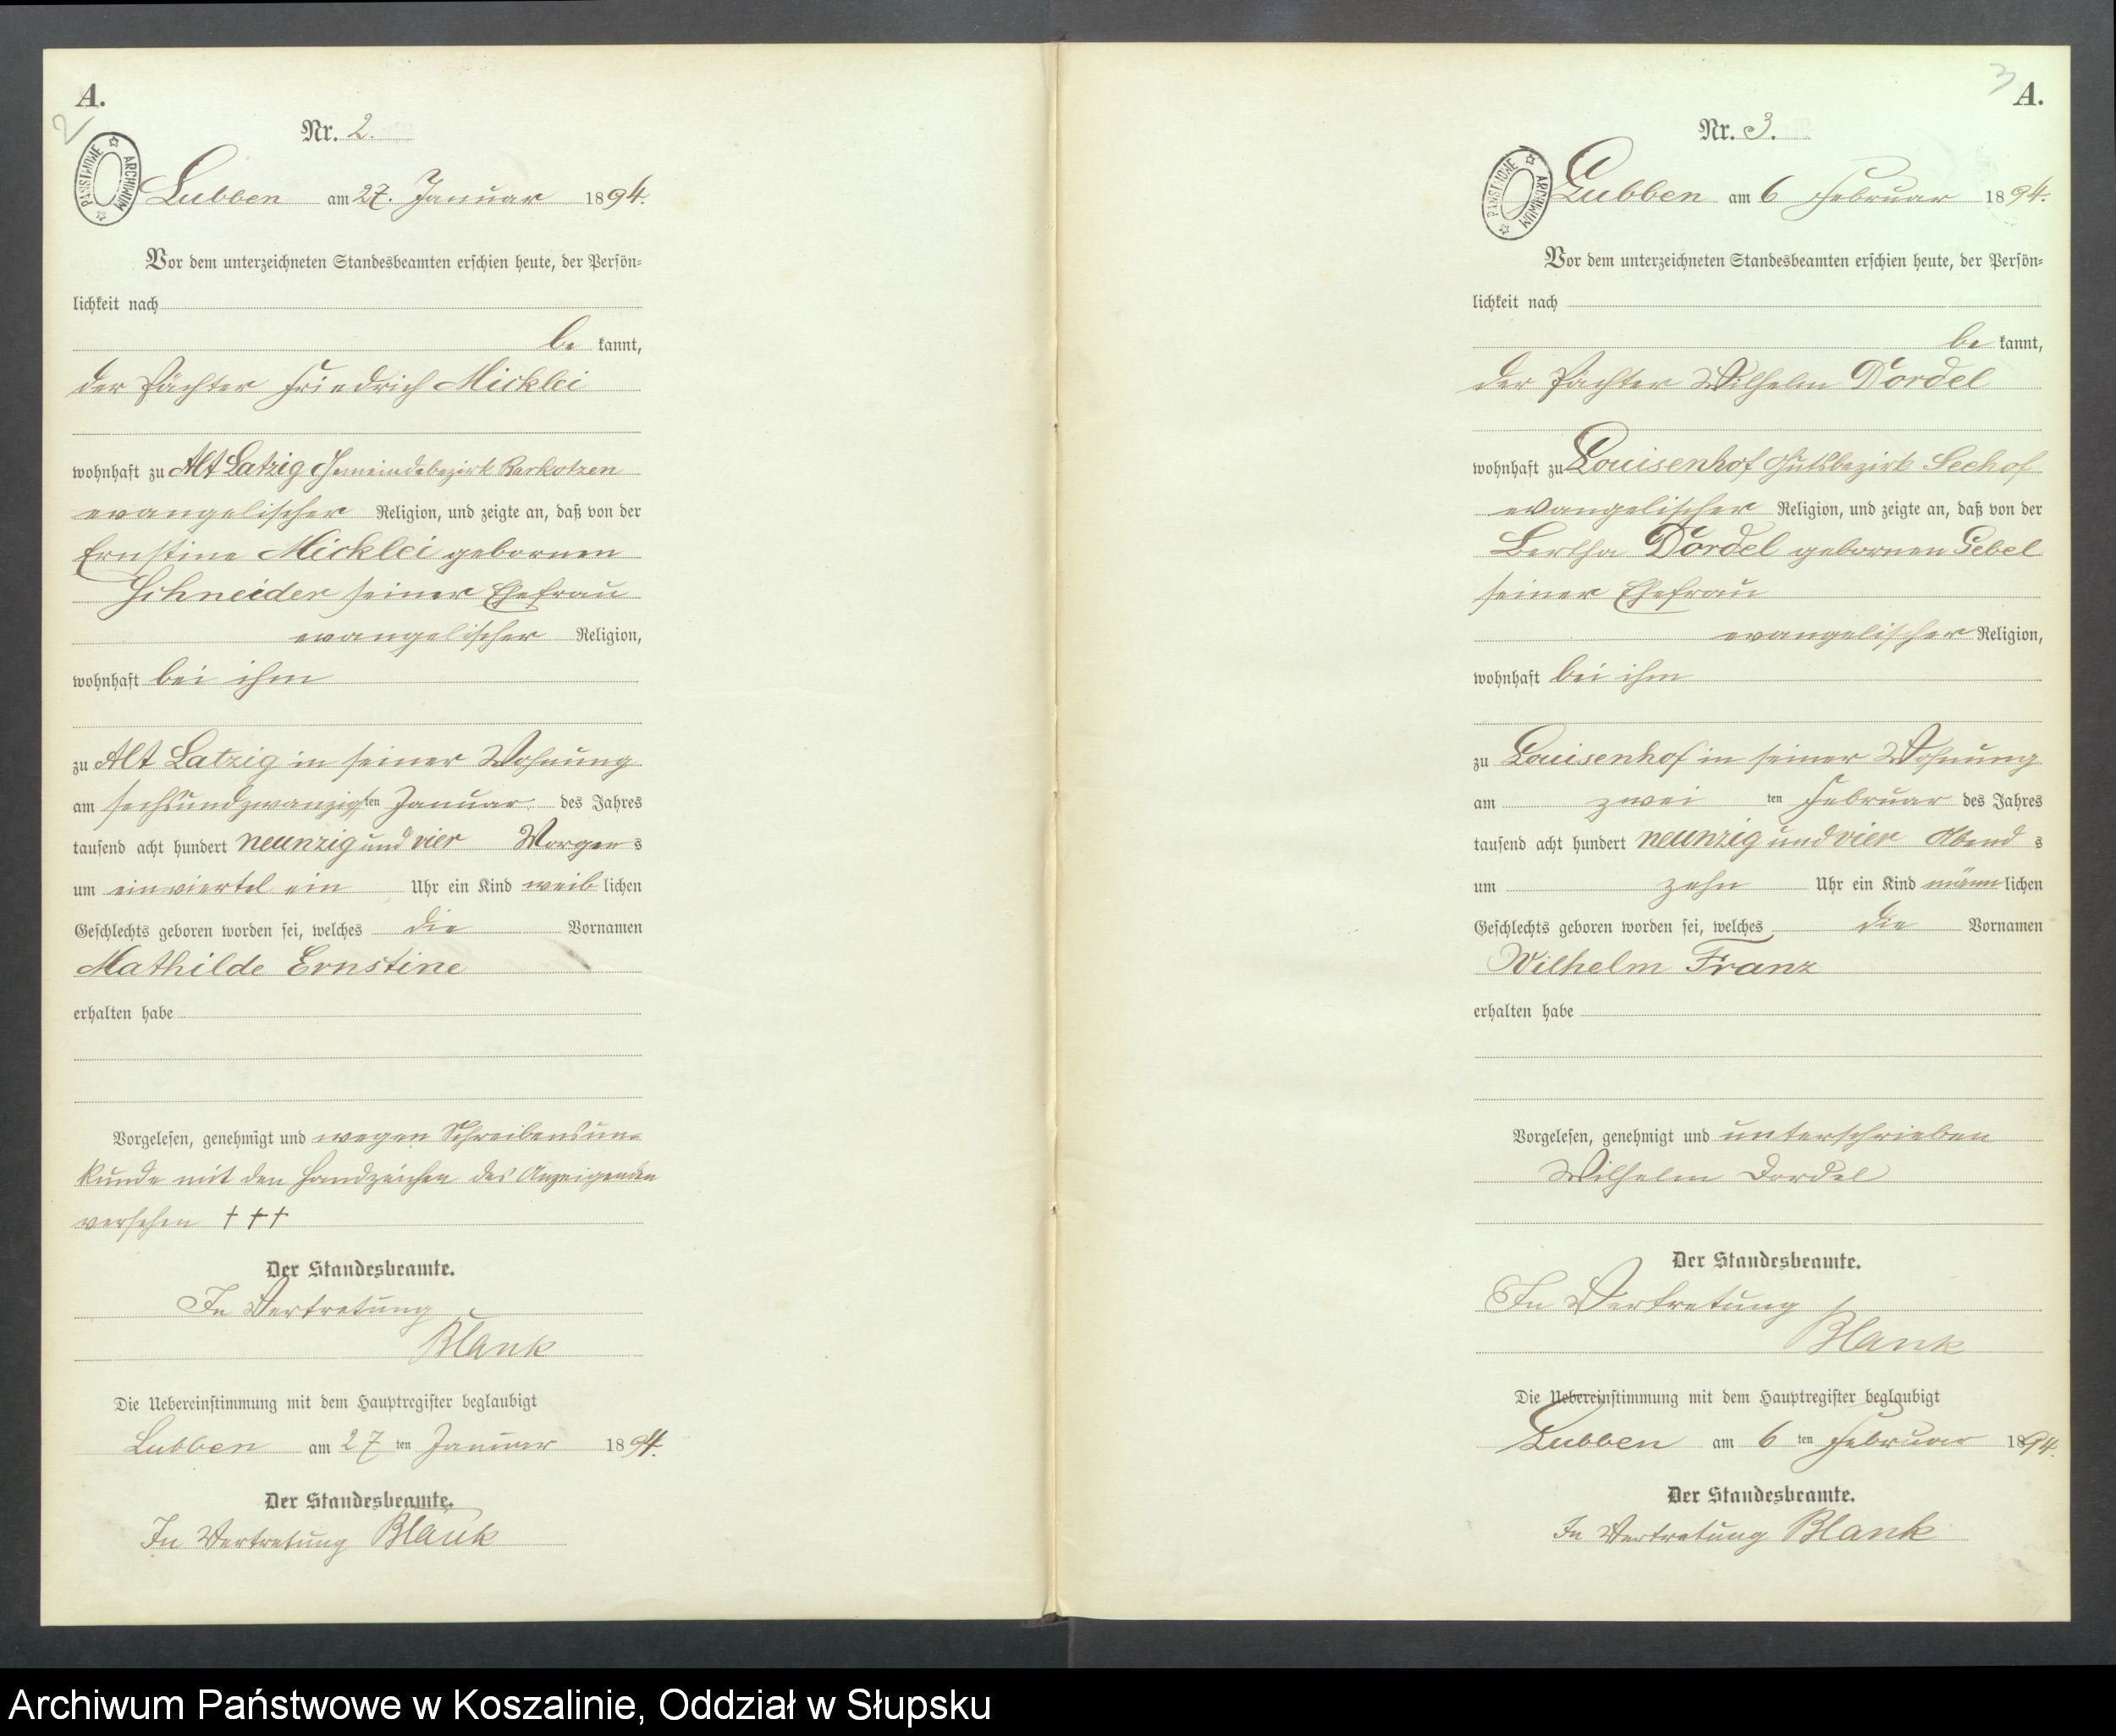 A.
2
Nr. 2.
ARCHIWUM PAŃSTWOWE
Lubben am 27. Januar 1894.
Vor dem unterzeichneten Standesbeamten erschien heute, der Persön=
lichkeit nach
be kannt,
der Pächter Friedrich Micklei
wohnhaft zu Alt Latzig Gemeindebezirk Barkotzen
evangelischer Religion, und zeigte an, daß von der
Ernstine Micklei gebornen
Schneider seiner Ehefrau
evangelischer Religion,
wohnhaft bei ihm
zu Alt Latzig in seiner Wohnung
am sechsundzwanzigten Januar des Jahres
tausend acht hundert neunzig und vier Morgens
um einviertel ein Uhr ein Kind weiblichen
Geschlechts geboren worden sei, welches die Vornamen
Mathilde Ernstine
erhalten habe
Vorgelesen, genehmigt und wegen Schreibensun=
kunde mit den Handzeichen des Anzeigenden
versehen +++
Der Standesbeamte.
In Vertretung
Blank
Die Uebereinstimmung mit dem Hauptregister beglaubigt
Lubben am 27 ten Januar 1894.
Der Standesbeamte.
In Vertretung Blank
3
A.
Nr. 3.
ARCHIWUM PAŃSTWOWE
Lubben am 6 Februar 1894.
Vor dem unterzeichneten Standesbeamten erschien heute, der Persön=
lichkeit nach
be kannt,
der Pächter Wilhelm Dordel
wohnhaft zu Louisenhof Gutsbezirk Seehof
evangelischer Religion, und zeigte an, daß von der
Bertha Dordel gebornen Gebel
seiner Ehefrau
evangelischer Religion,
wohnhaft bei ihm
zu Louisenhof in seiner Wohnung
am zwei ten Februar des Jahres
tausend acht hundert neunzig und vier Abend s
um zehn Uhr ein Kind männlichen
Geschlechts geboren worden sei, welches die Vornamen
Wilhelm Franz
erhalten habe
Vorgelesen, genehmigt und unterschrieben
Wilhelm Dordel
Der Standesbeamte.
In Vertretung
Blank
Die Uebereinstimmung mit dem Hauptregister beglaubigt
Lubben am 6 ten Februar 1894.
Der Standesbeamte.
In Vertretung Blank
Archiwum Państwowe w Koszalinie, Oddział w Słupsku